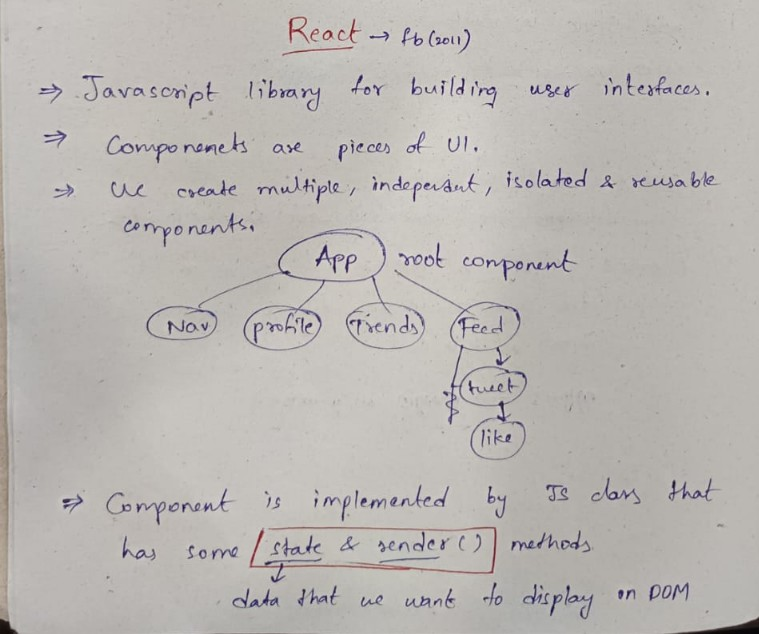 React → fb (2011)
⇒ Javascript library for building user interfaces.
⇒ Componenets are pieces of UI.
⇒ We create multiple, independent, isolated & reusable
components.
App root component
Nav profile Trends Feed
tweet
like
⇒ Component is implemented by JS class that
has some state & render() methods.
data that we want to display on DOM